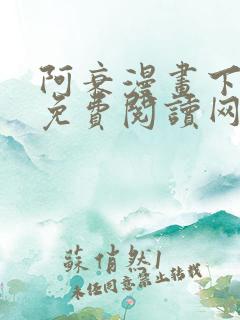 阿衰漫畫下
免費閱讀网
蘇俏然1
未经同意禁止转载